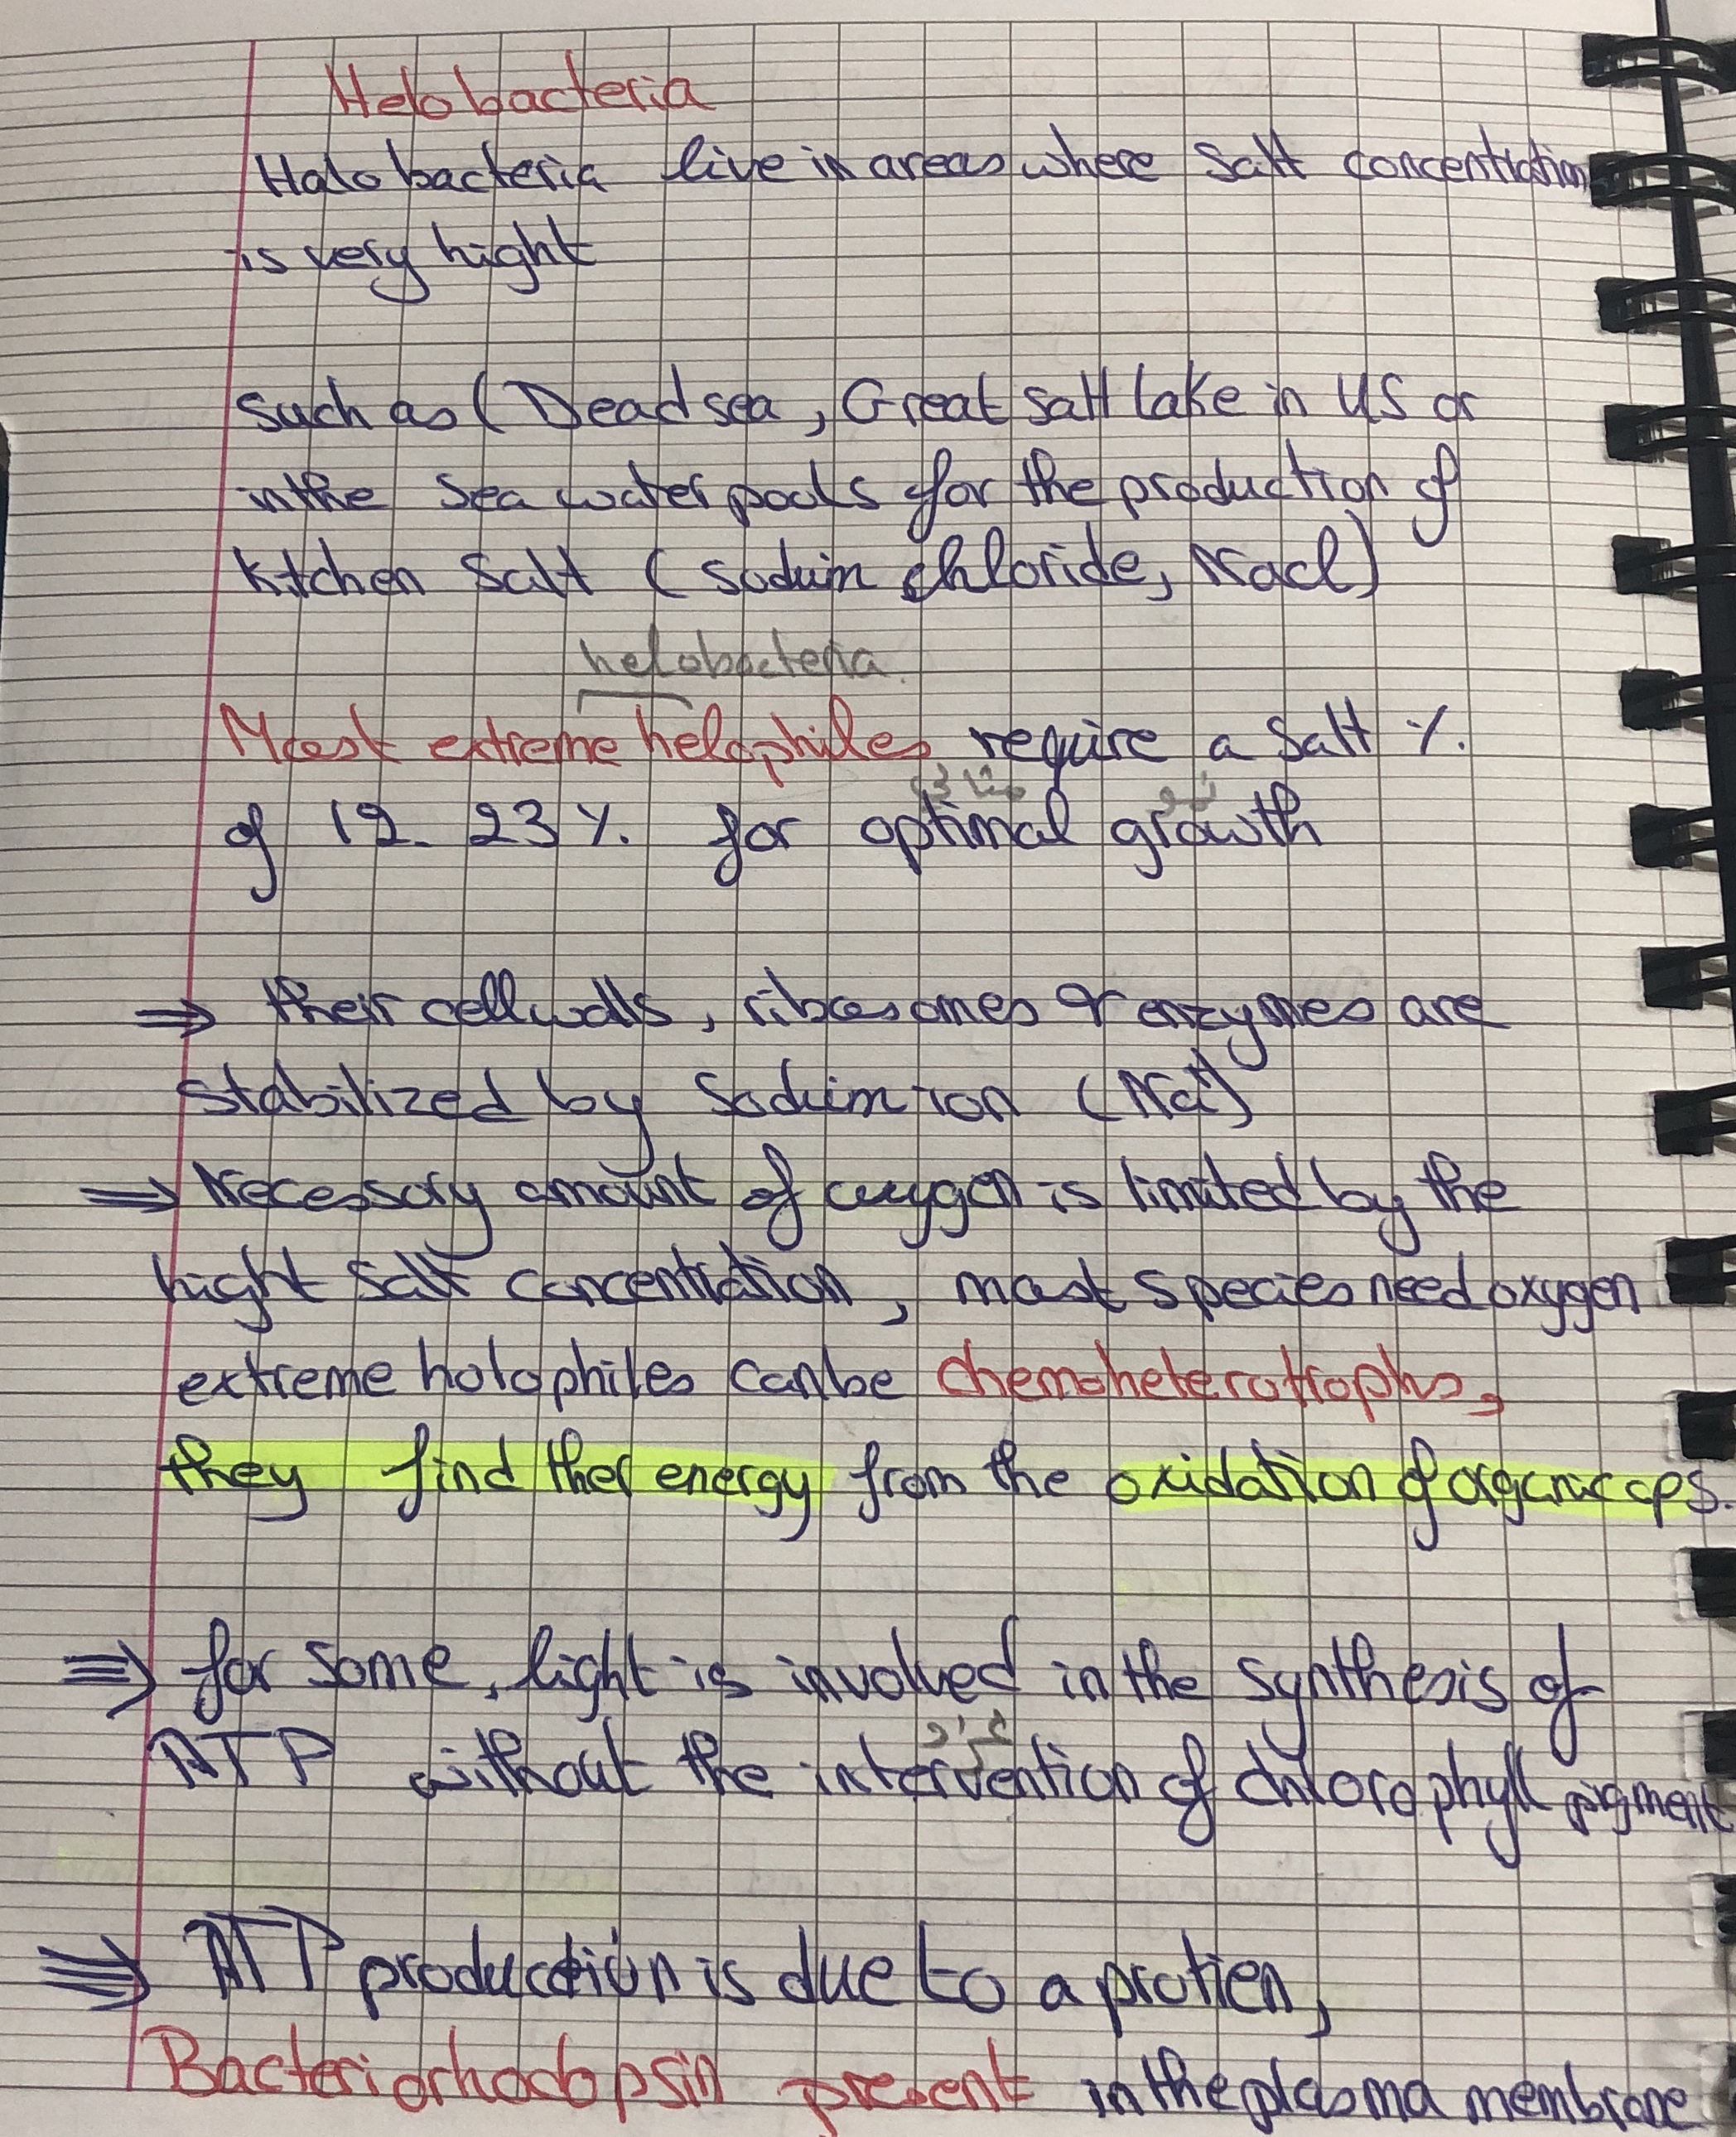 Helobacteria
Halobacteria live in areas where Salt concentration
is very hight
Such as ( Dead sea , Great salt lake in US or
in the sea water pools for the production of
Kitchen Salt ( Soduim chloride, Nacl)
helobacteria.
Most extreme helophiles require a Salt %.
of 12. 23 %. for optimal growth
نمو
⇒ their cell walls, ribosomes & enzymes are
Stabilized by Soduim ion (Na+)
⇒ Necessary amount of oxygen is limited by the
hight Salt concentration , most species need oxygen
extreme holophiles can be chemoheterotrophs,
they find ther energy from the oxidation of organic cps.
⇒ for some, light is involved in the synthesis of
ATP without the intervention of chlorophyll pigment
⇒ ATP production is due to a protien,
Bacteriorhodopsin present in the plasma membrane